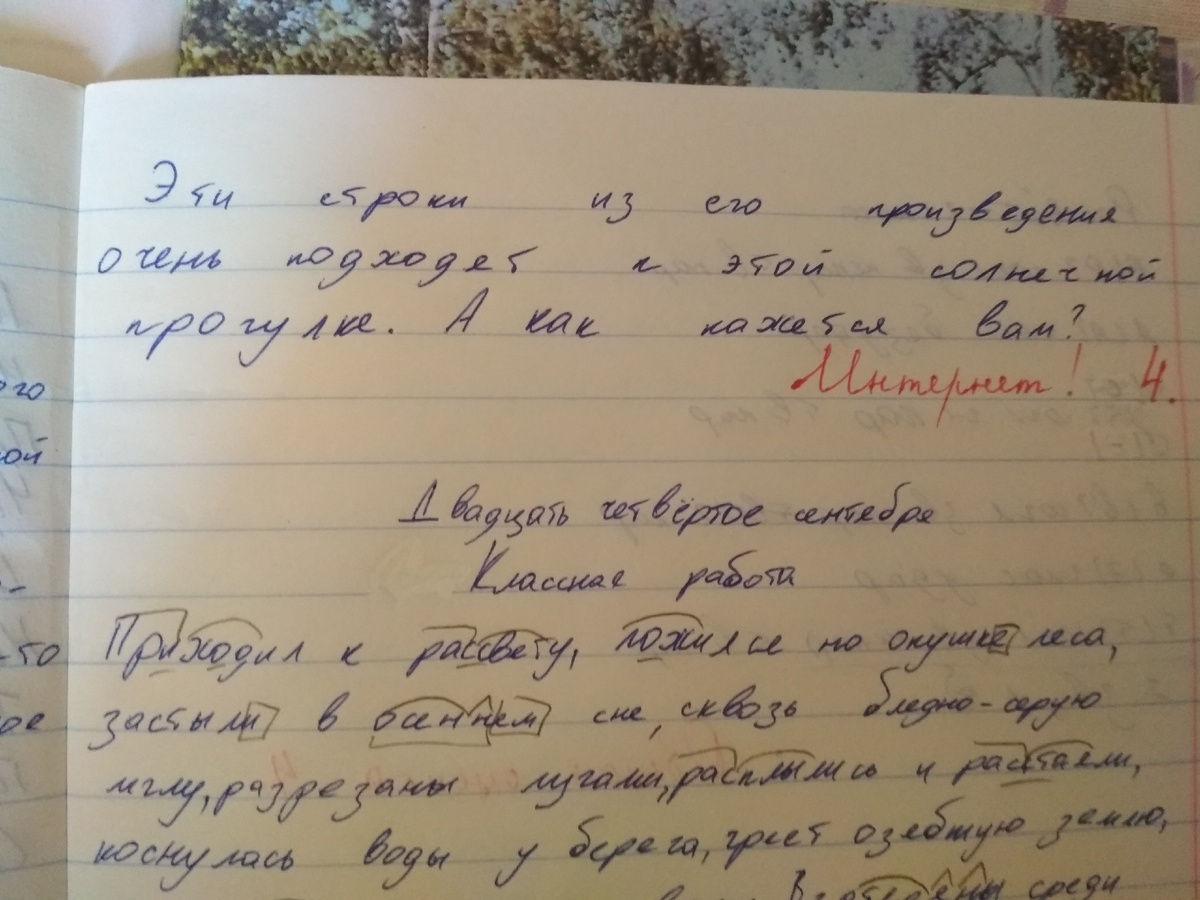 Эти строки из его произведения
очень подходят к этой солнечной
прогулке. А как кажется вам?
Интернет! 4.
Двадцать четвёртое сентября
Классная работа
Приходил к рассвету, ложился на опушке леса,
застыли в осеннем сне, сквозь бледно-серую
мглу, разрезаны лугами, расплылись и растаяли,
коснулась воды у берега, греет озябшую землю,
среди
ого
ой
-то
ое